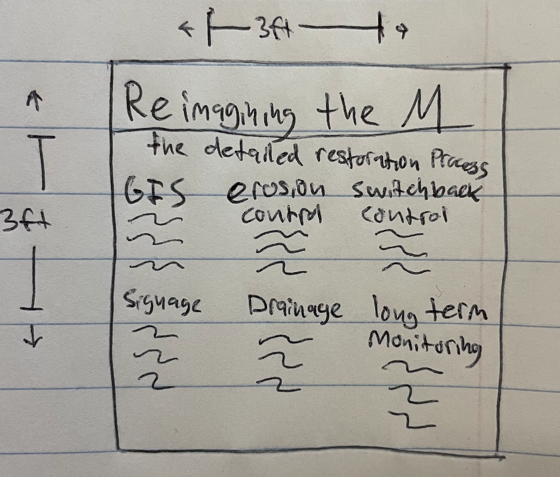 3ft
Reimagining the M
the detailed restoration Process
GIS erosion control switchback control
3ft
Signage Drainage long term Monitoring